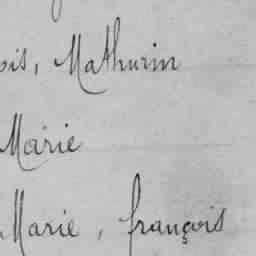 ois, Mathurin
Marie
Marie, françois